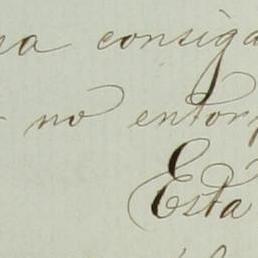 consiga
no entor
Está